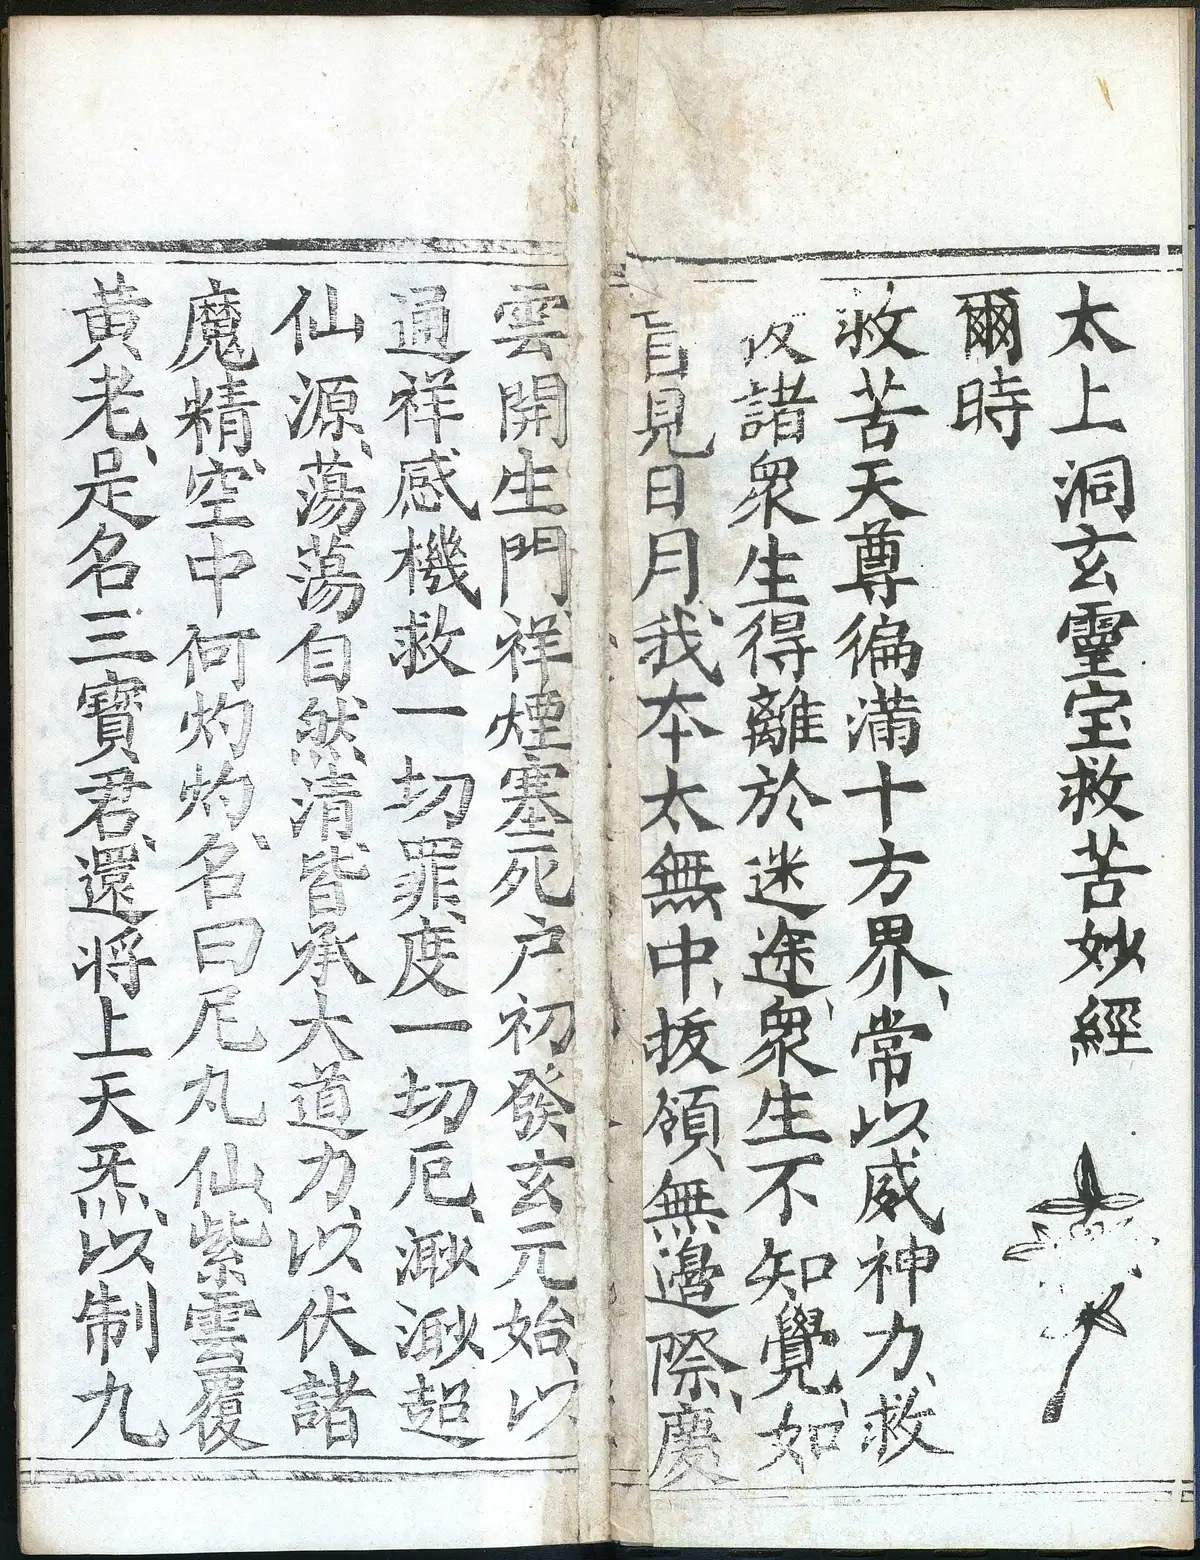 太上洞玄靈宝救苦妙經
爾時
救苦天尊徧滿十方界、常以威神力、救
拔諸衆生得離於迷途、衆生不知覺、如
盲見日月、我本太無中、拔領無邊際、慶
雲開生門、祥煙塞死户初發玄元始、以
通祥感機救一切罪、度一切厄、渺渺超
仙源、蕩蕩自然清、皆承大道力、以伏諸
魔精、空中何灼灼、名曰尼丸仙、紫雲覆
黄老、是名三寶君、還将上天炁、以制九